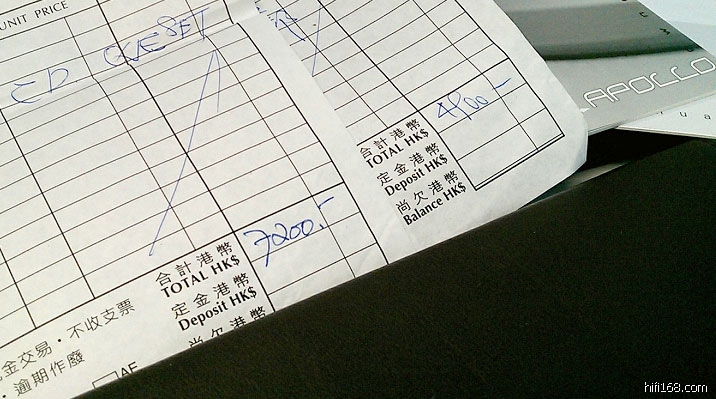 UNIT PRICE
CD ONE SET
7200.-
合計港幣
TOTAL HK$
定金港幣
Deposit HK$
尚欠港幣
金交易·不收支票
·逾期作廢
4100.-
合計港幣
TOTAL HK$
定金港幣
Deposit HK$
尚欠港幣
Balance HK$
APOLLO
hifi168.com